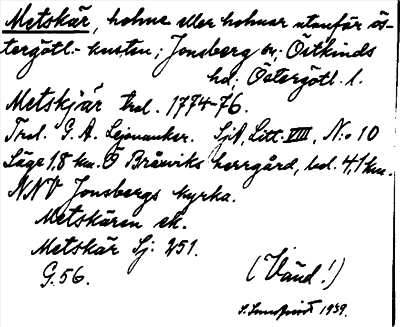 Metskär, holme eller holmar utanför ös-
tergötl.-kusten; Jonsberg sn; Östkinds
hd; Östergötl. l.
Metskjär trol. 1774-76.
Trol. G. A. Lejonanker. SjA, Litt. VIII, N:o 10
Läge 1,8 km. Ö Bråviks herrgård, bel. 4,1 km.
NNV Jonsbergs kyrka.
Metskären ek.
Metskär Sj: 251.
G. 56.
(Vänd!)
1939.